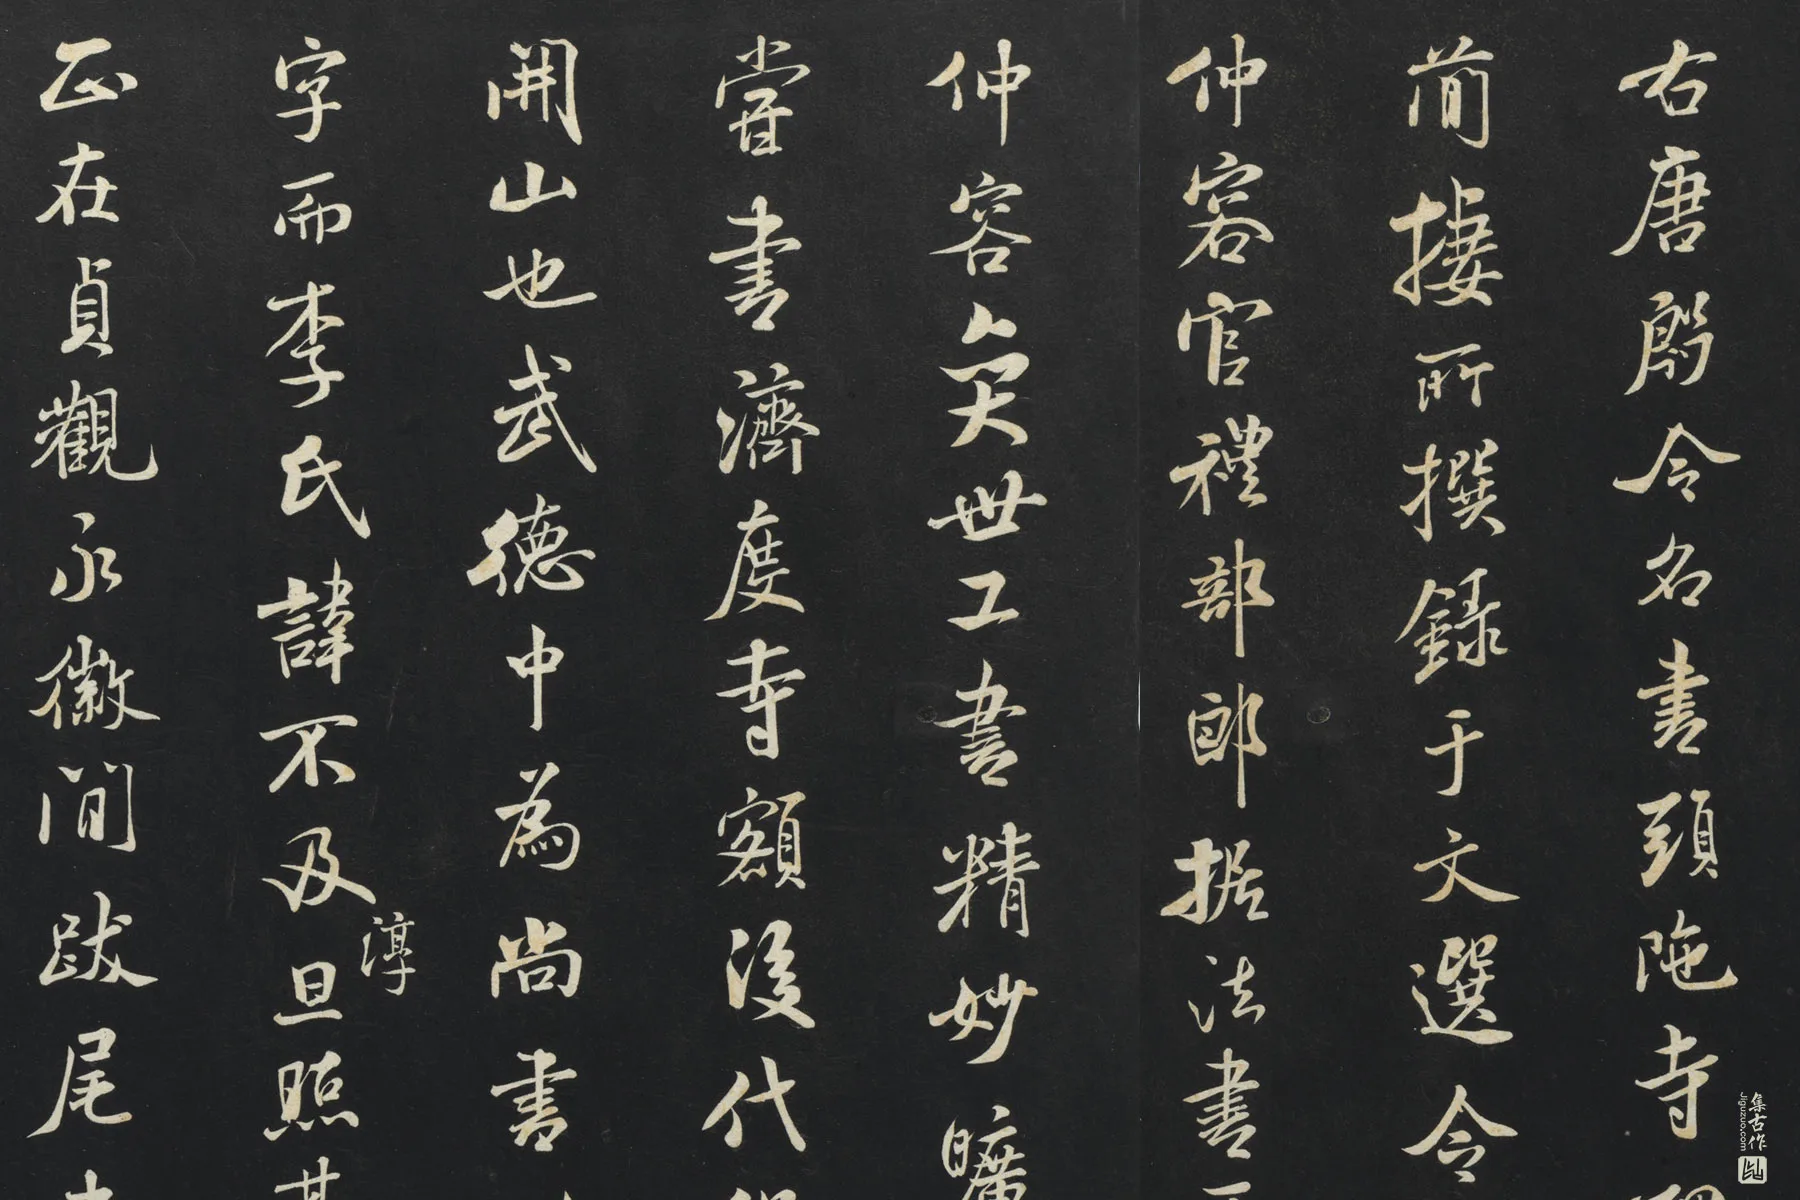 右唐殷令名書頭陁寺
蕳捿所撰錄于文選令
仲容官禮部郎据法書
仲容奕世工書精妙曠
嘗書濟度寺額後代
開山也武德中為尚書
字而李氏諱不及旦照其
淳
正在貞觀永徽間跋尾
集古作
Jiguzuo.com